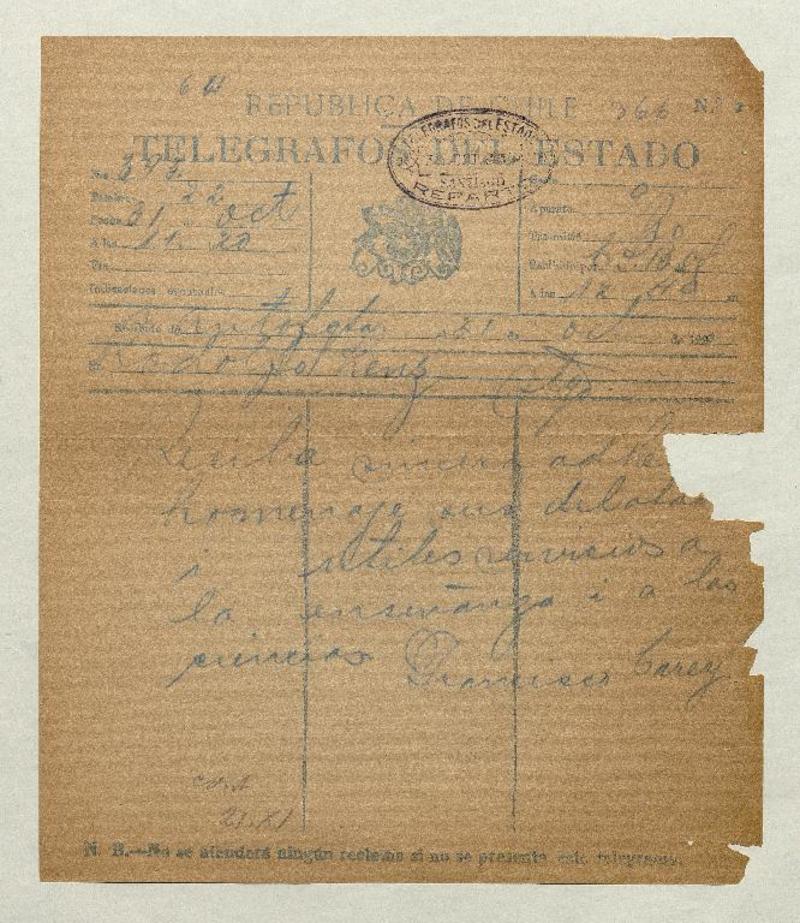 64
REPUBLICA DE CHILE 366 N.º
TELEGRAFOS DEL ESTADO
TELEGRAFOS DEL ESTADO
SANTIAGO
REPARTO
No. 343
Palabras 22
Fecha 31 oct
A las 11. 20
Via
Indicaciones eventuales
Aparato
Trasmitido 30
Recibido por
A las 12
Recibido de Antofgta 31 oct de 192
A Rodolfo Lenz Stgo.
Reciba sincera adhe
homenaje sus dilatados
i utiles servicios a
la enseñanza i a las
ciencias Francisco Carey
cont
21.XI
N. B.—No se atenderá ningún reclamo si no se presenta este telegrama.